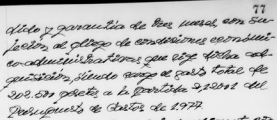 77
dido y garantía de tres meses con su-
jeción al pliego de condiciones económi-
co-administrativas que rige dicha ad-
quisición, siendo cargo el gasto total de
208.500 pesetas a la partida 2,12012 del
Presupuesto de Gastos de 1.977